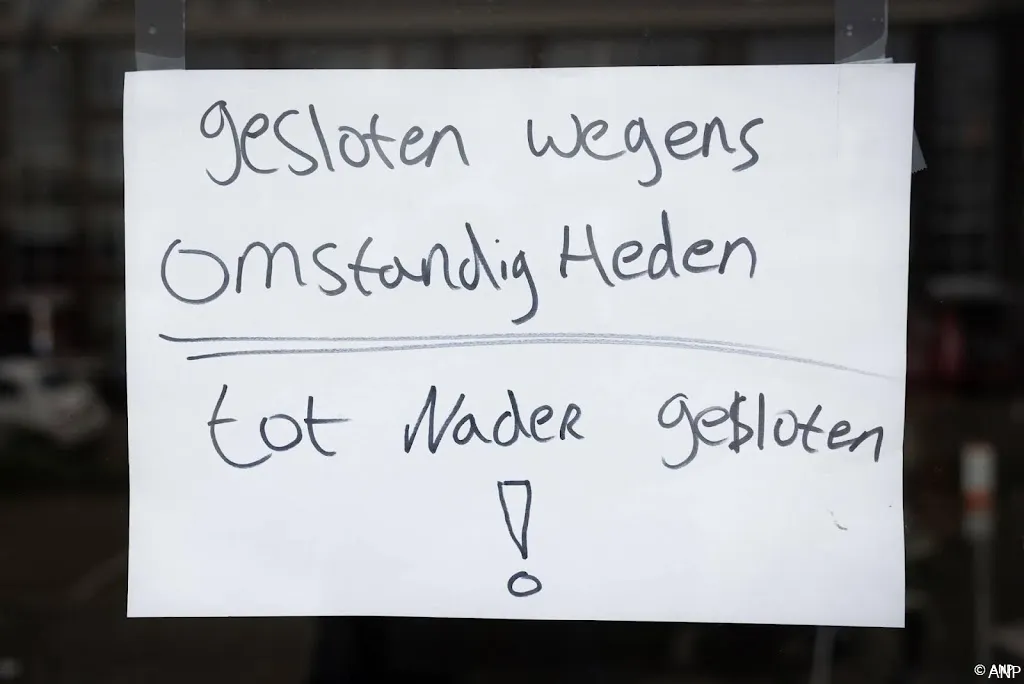 gesloten wegens
OmstandigHeden
tot Nader gesloten
!
© ANP